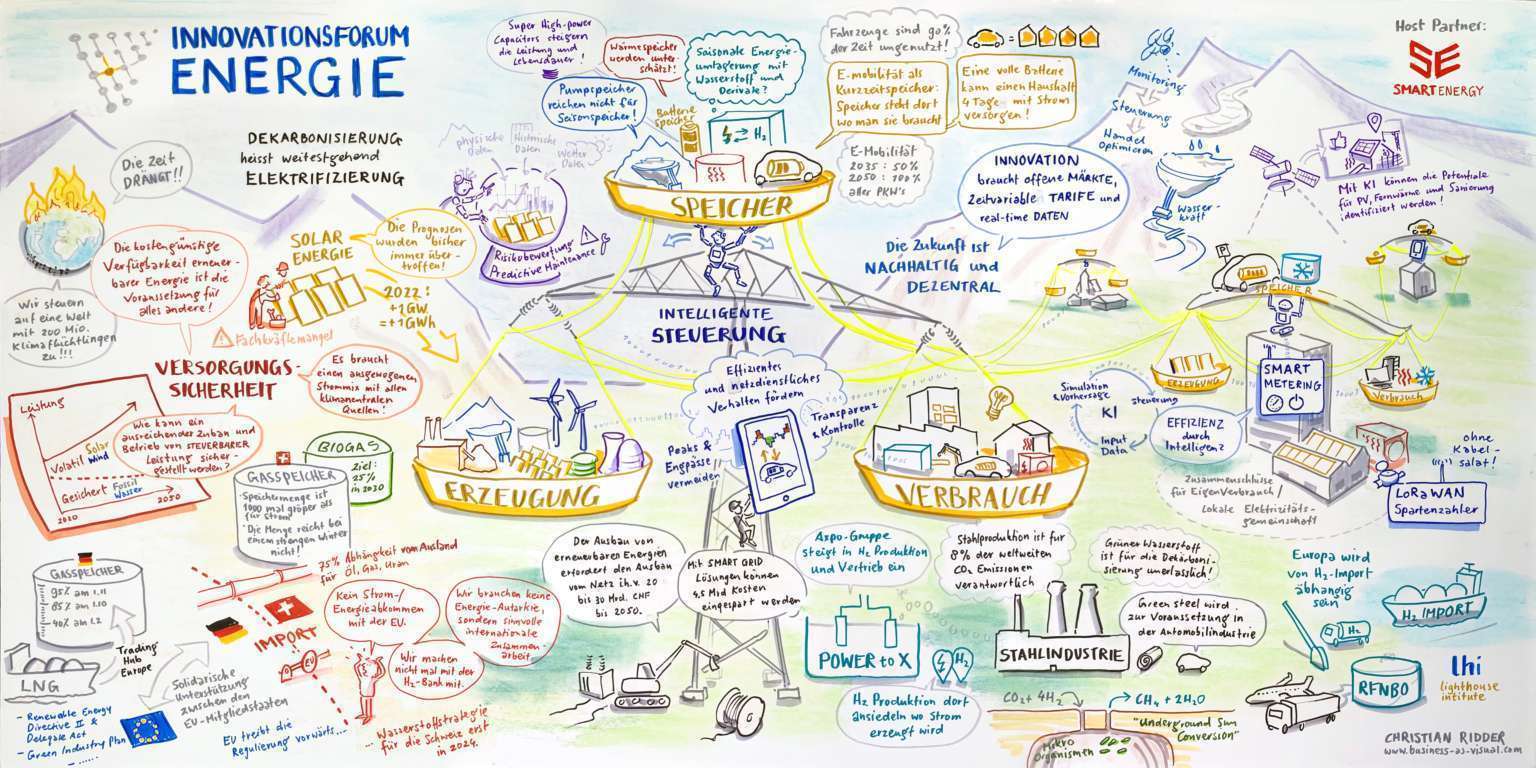 INNOVATIONSFORUM
ENERGIE
DEKARBONISIERUNG
heisst weitestgehend
ELEKTRIFIZIERUNG
Die Zeit
DRÄNGT!!
Wir steuern
auf eine Welt
mit 200 Mio.
Klimaflüchtlingen
zu!!!
Die kostengünstige
Verfügbarkeit erneuer-
barer Energie ist die
Voraussetzung für
alles andere!
SOLAR
ENERGIE
Fachkräftemangel
Die Prognosen
wurden bisher
immer über-
troffen!
2022:
+1GW
=+1GWh
VERSORGUNGS-
SICHERHEIT
Es braucht
einen ausgewogenen
Strommix mit allen
klimaneutralen
Quellen!
Leistung
Wie kann ein
ausreichender Zubau und
Betrieb von STEUERBARER
Leistung sicher-
gestellt werden?
Volatil
Solar
Wind
Gesichert
Fossil
Wasser
2020
2050
BIOGAS
Ziel:
25%
in 2030
GASSPEICHER
- Speichermenge ist
1000 mal größer als
für Strom
- Die Menge reicht bei
einem strengen Winter
nicht!
GASSPEICHER
95% am 1.11
85% am 1.10
40% am 1.2
LNG
Trading
Hub
Europe
- Renewable Energy
Directive II &
Delegate Act
- Green Industry Plan
- .....
75% Abhängigkeit vom Ausland
für Öl, Gas, Uran
IMPORT
EU
Solidarische
Unterstützung
zwischen den
EU-Mitgliedstaaten
EU treibt die
Regulierung vorwärts...
Kein Strom-/
Energieabkommen
mit der EU.
Wir brauchen keine
Energie-Autarkie,
sondern sinnvolle
internationale
Zusammen-
arbeit
Wir machen
nicht mal mit der
H₂-Bank mit.
Wasserstoffstrategie
für die Schweiz erst
in 2024.
Super High-power
Capacitors steigern
die Leistung und
Lebensdauer!
Wärmespeicher
werden unter-
schätzt!
Saisonale Energie-
umlagerung mit
Wasserstoff und
Derivate?
Pumpspeicher
reichen nicht für
Saisonspeicher!
Batterie
speicher
H₂
physische
Daten
Historische
Daten
Wetter
Daten
Risikobewertung
Predictive Maintenance
SPEICHER
Fahrzeuge sind 90%
der Zeit ungenutzt!
E-mobilität als
Kurzzeitspeicher:
Speicher steht dort
wo man sie braucht
Eine volle Batterie
kann einen Haushalt
4 Tage mit Strom
versorgen!
E-Mobilität
2035: 50%
2050: 100%
aller PKW's
INNOVATION
braucht offene MÄRKTE,
Zeitvariable TARIFE und
real-time DATEN
Die Zukunft ist
NACHHALTIG und
DEZENTRAL
INTELLIGENTE
STEUERUNG
Effizientes
und netzdienstliches
Verhalten fördern
Transparenz
& Kontrolle
Peaks &
Engpässe
vermeiden
ERZEUGUNG
VERBRAUCH
Simulation
& Vorhersage
KI
Steuerung
Input
Data
Monitoring
Steuerung
Handel
Optimieren
Wasser-
kraft
Host Partner:
SE
SMARTENERGY
Mit KI können die Potentiale
für PV, Fernwärme und Sanierung
identifiziert werden!
SPEICHER
ERZEUGUNG
Verbrauch
SMART
METERING
EFFIZIENZ
durch
Intelligenz
Zusammenschlüsse
für Eigenverbrauch/
Lokale Elektrizitäts-
gemeinschaft
ohne
Kabel-
salat!
LoRaWAN
Spartenzähler
Der Ausbau von
erneuerbaren Energien
erfordert den Ausbau
vom Netz i.h.v. 20
bis 30 Mrd. CHF
bis 2050.
Mit SMART GRID
Lösungen können
4,5 Mrd Kosten
eingespart werden
Axpo-Gruppe
steigt in H₂ Produktion
und Vertrieb ein
POWER to X
H₂
H₂ Produktion dort
ansiedeln wo Strom
erzeugt wird
Stahlproduktion ist für
8% der weltweiten
CO₂ Emissionen
verantwortlich
Grüner Wasserstoff
ist für die Dekarboni-
sierung unerlässlich!
Green steel wird
zur Voraussetzung in
der Automobilindustrie
STAHLINDUSTRIE
CO₂ + 4H₂
CH₄ + 2H₂O
"Underground Sun
Conversion"
Mikro
Organismen
Europa wird
von H₂-Import
abhängig
sein
H₂ IMPORT
H₂
RFNBO
lhi
lighthouse
intitute
CHRISTIAN RIDDER
www.business-as-visual.com